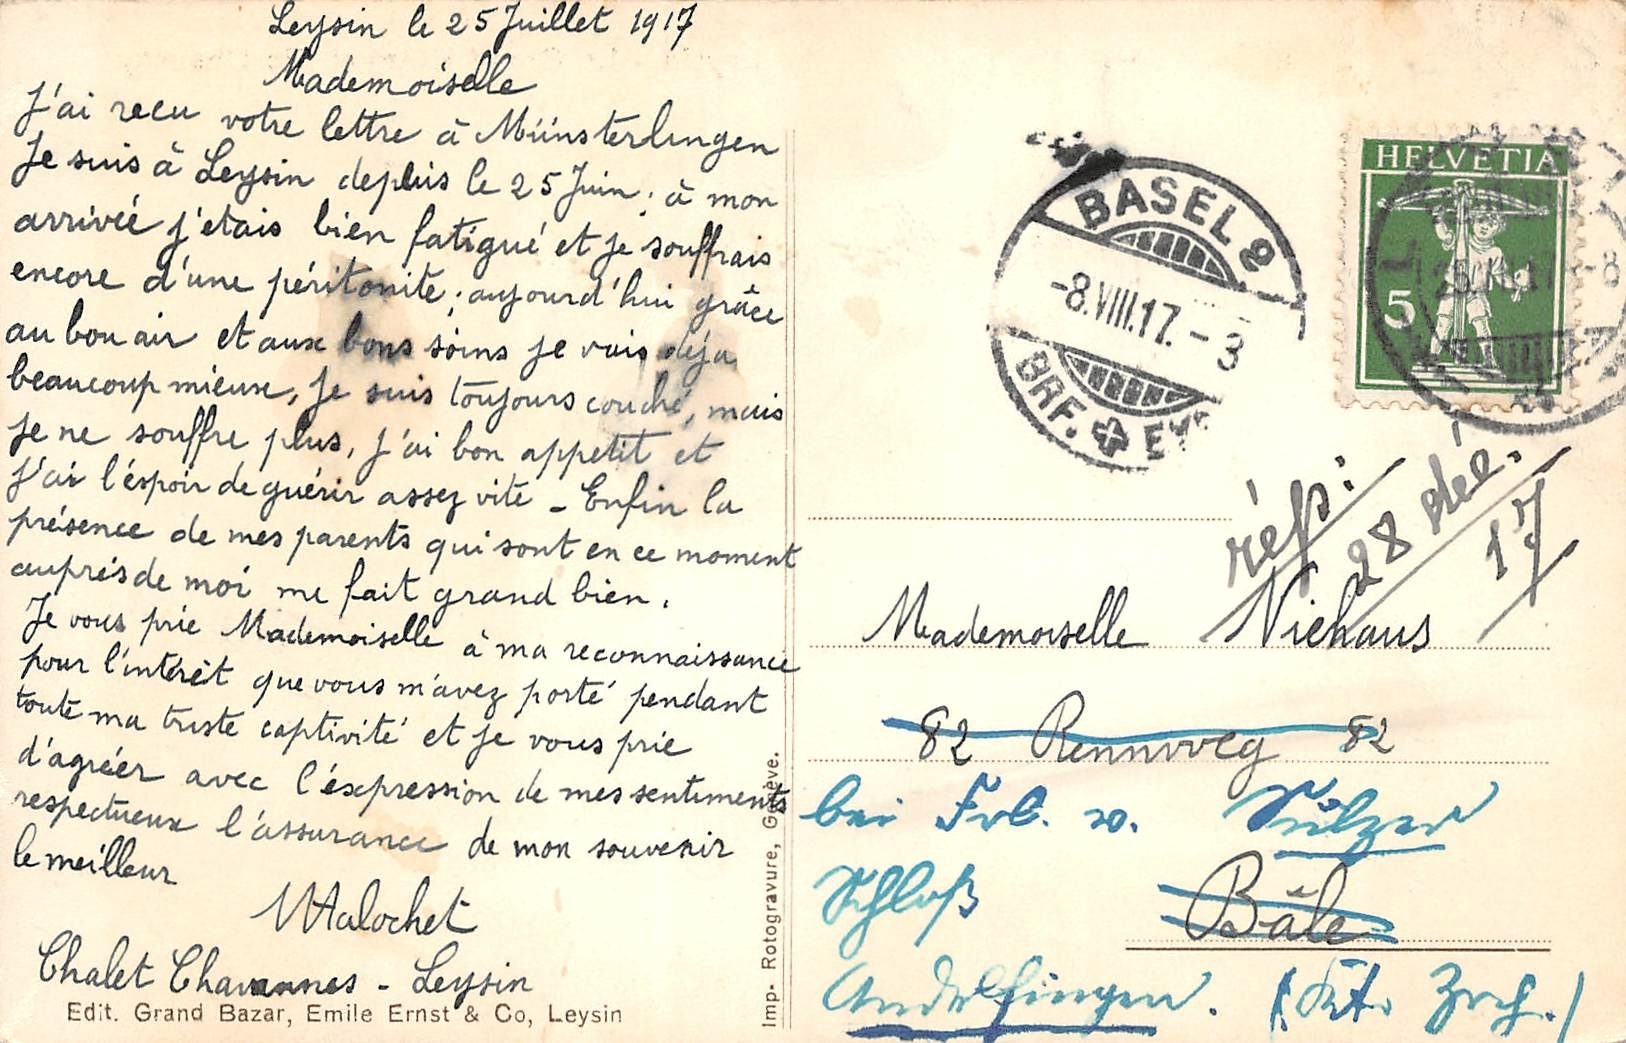 Leysin le 25 Juillet 1917
Mademoiselle
J'ai recu votre lettre à Münsterlingen
Je suis à Leysin depuis le 25 Juin; à mon
arrivée j'etais bien fatigué et je souffrais
encore d'une péritonite; aujourd'hui grâce
au bon air et aux bons soins je vais déja
beaucoup mieux, je suis toujours couché, mais
je ne souffre plus, j'ai bon appetit et
j'ai l'éspoir de guérir assez vite - Enfin la
présence de mes parents qui sont en ce moment
auprés de moi me fait grand bien.
Je vous prie Mademoiselle à ma reconnaissance
pour l'intérêt que vous m'avez porté pendant
toute ma triste captivité et je vous prie
d'agréer avec l'éxpression de mes sentiments
respectueux l'assurance de mon souvenir
le meilleur
Malochet
Chalet Chavannes - Leysin
Edit. Grand Bazar, Emile Ernst & Co, Leysin
Imp- Rotogravure, Genève.
BASEL 2
-8.VIII.17.-3
BRF. ✚
HELVETIA
5
rép:
28 déc.
17
Mademoiselle Niehaus
82 Rennweg 82
bei Frl. v. Sulzer
Bâle
Schloß
Andelfingen. (Kt. Zrch.)